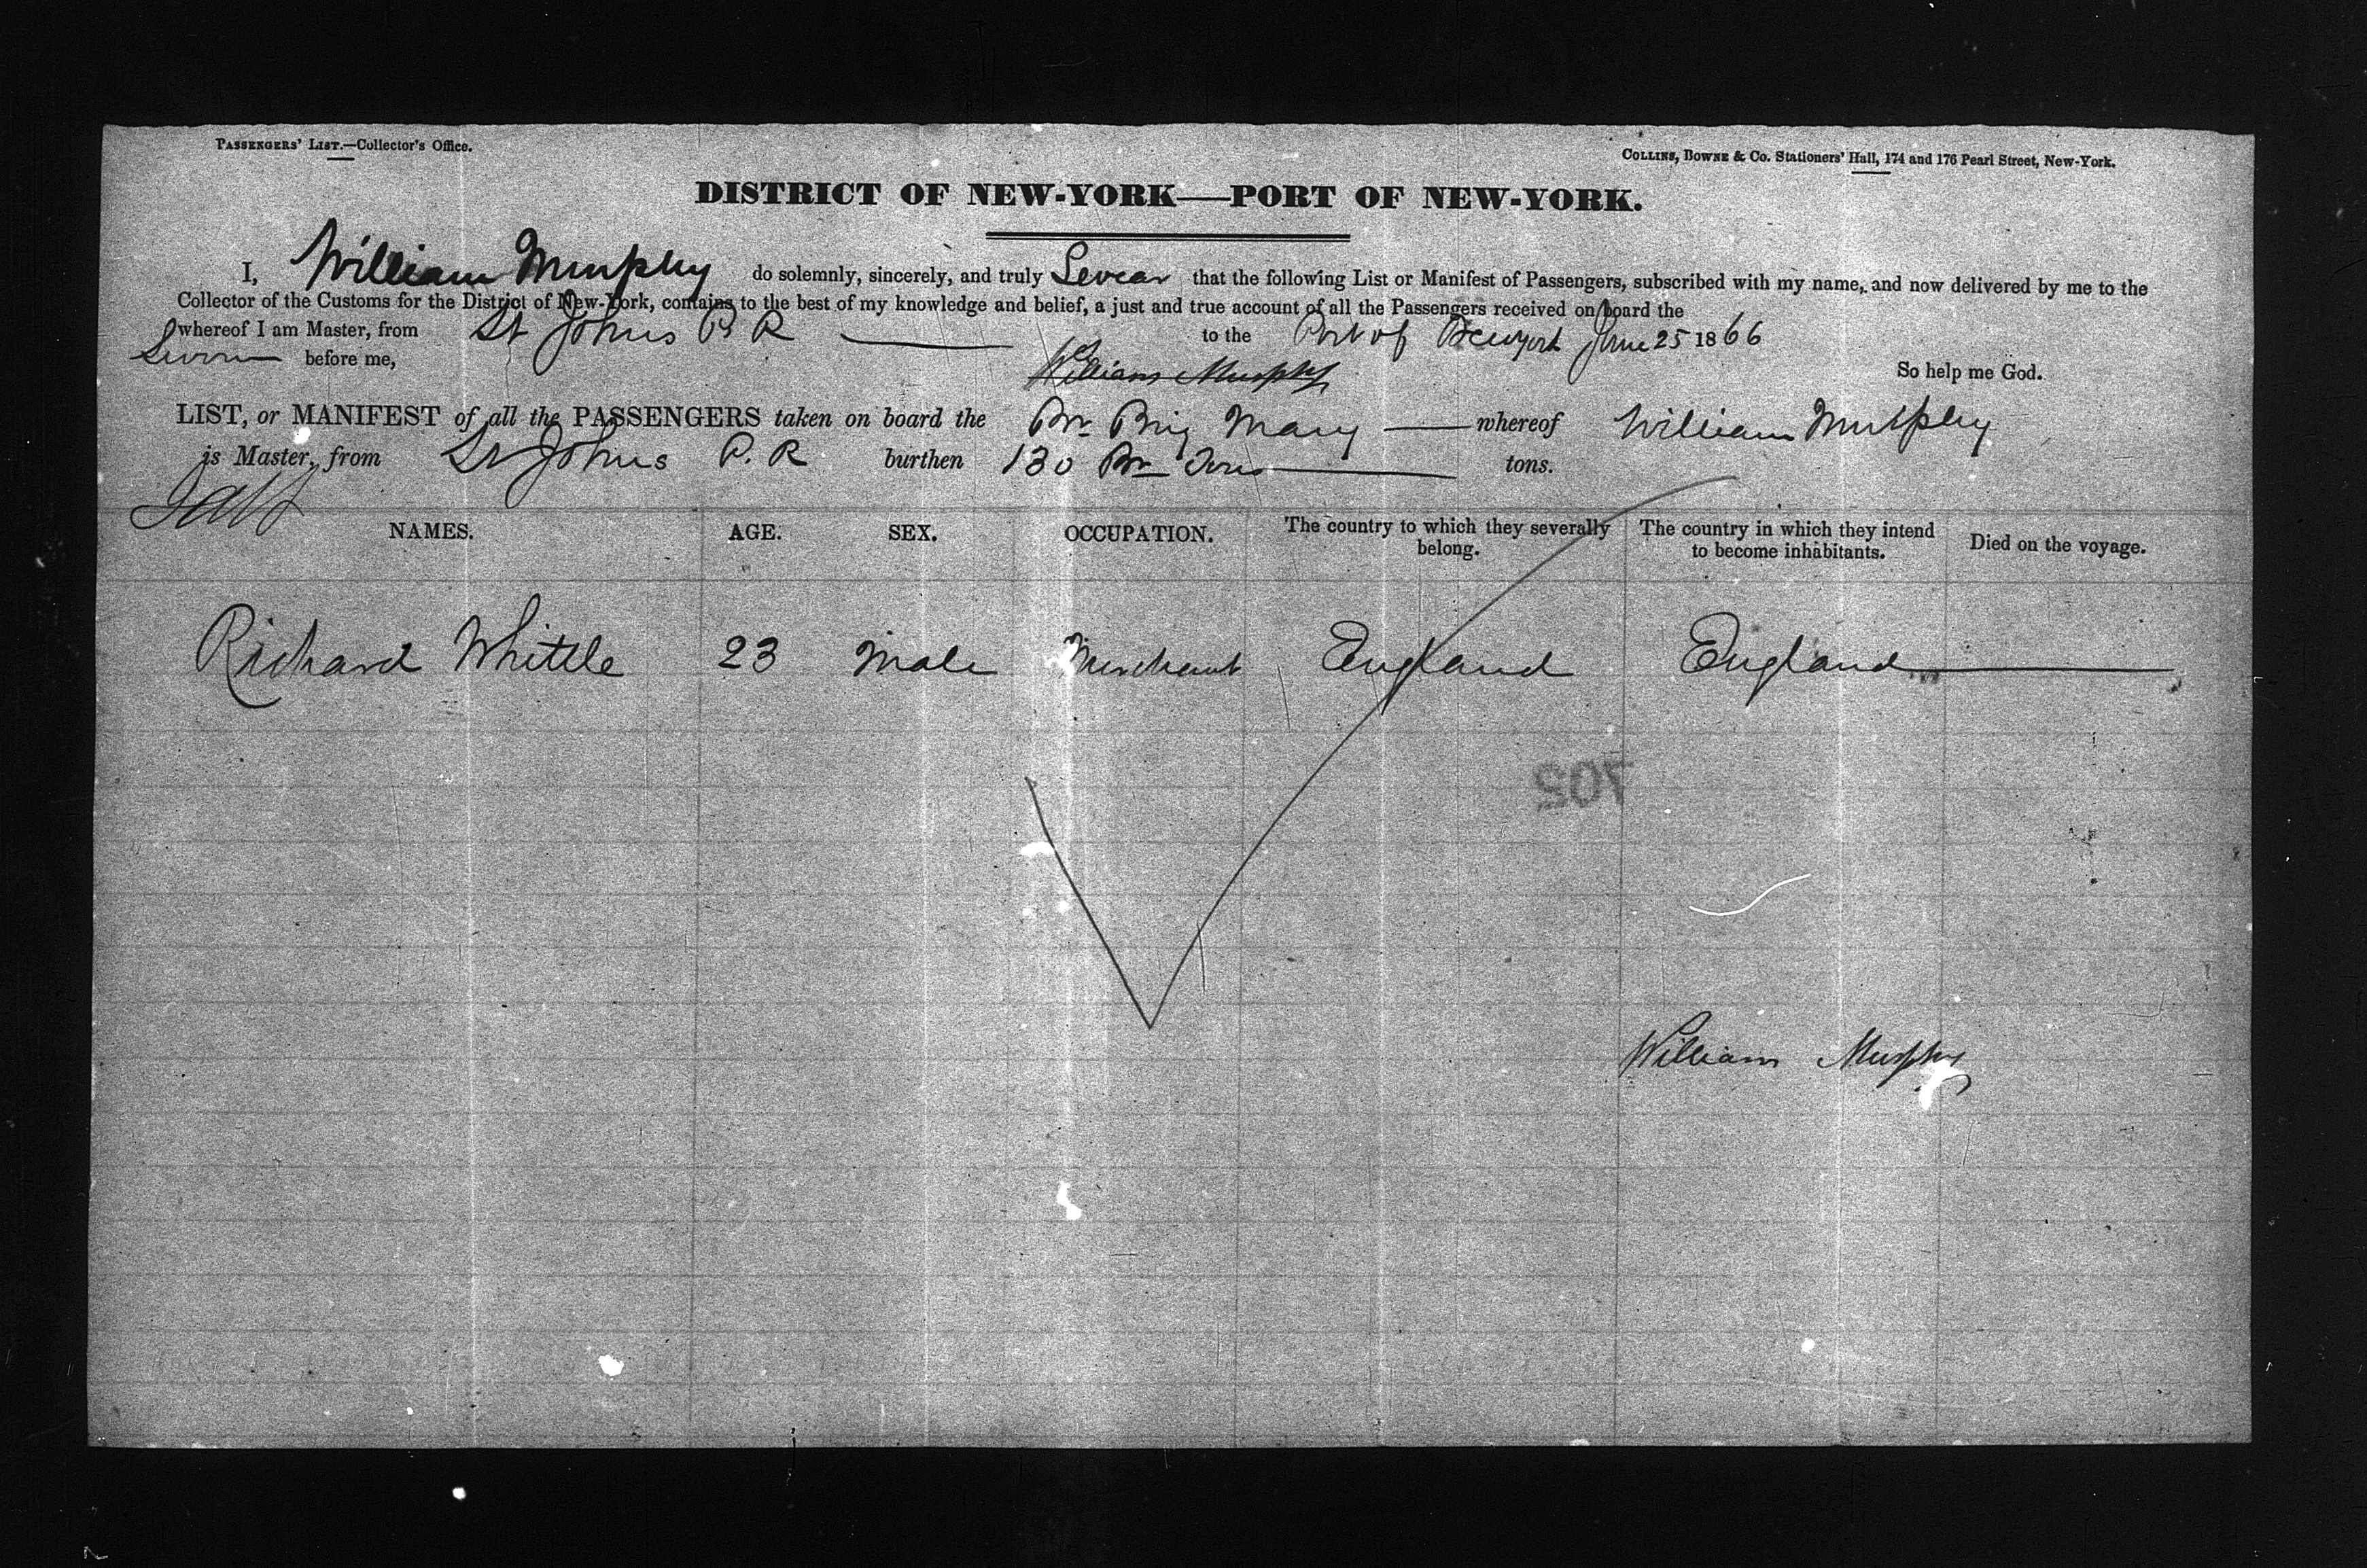 PASSENGERS' LIST.—Collector's Office.
COLLINS, BOWNE & Co. Stationers' Hall, 174 and 176 Pearl Street, New-York.
DISTRICT OF NEW-YORK—PORT OF NEW-YORK.
I, William Murphy do solemnly, sincerely, and truly Swear that the following List or Manifest of Passengers, subscribed with my name, and now delivered by me to the
Collector of the Customs for the District of New-York, contains to the best of my knowledge and belief, a just and true account of all the Passengers received on board the
whereof I am Master, from St Johns P. R to the Port of Newyork June 25 1866
Sworn before me,
William Murphy
So help me God.
LIST, or MANIFEST of all the PASSENGERS taken on board the Br. Brig Mary whereof William Murphy
is Master, from St Johns P. R burthen 130 Br tons.
NAMES. AGE. SEX. OCCUPATION. The country to which they severally belong. The country in which they intend to become inhabitants. Died on the voyage.
Richard Whittle 23 Male Merchant England England
702
William Murphy